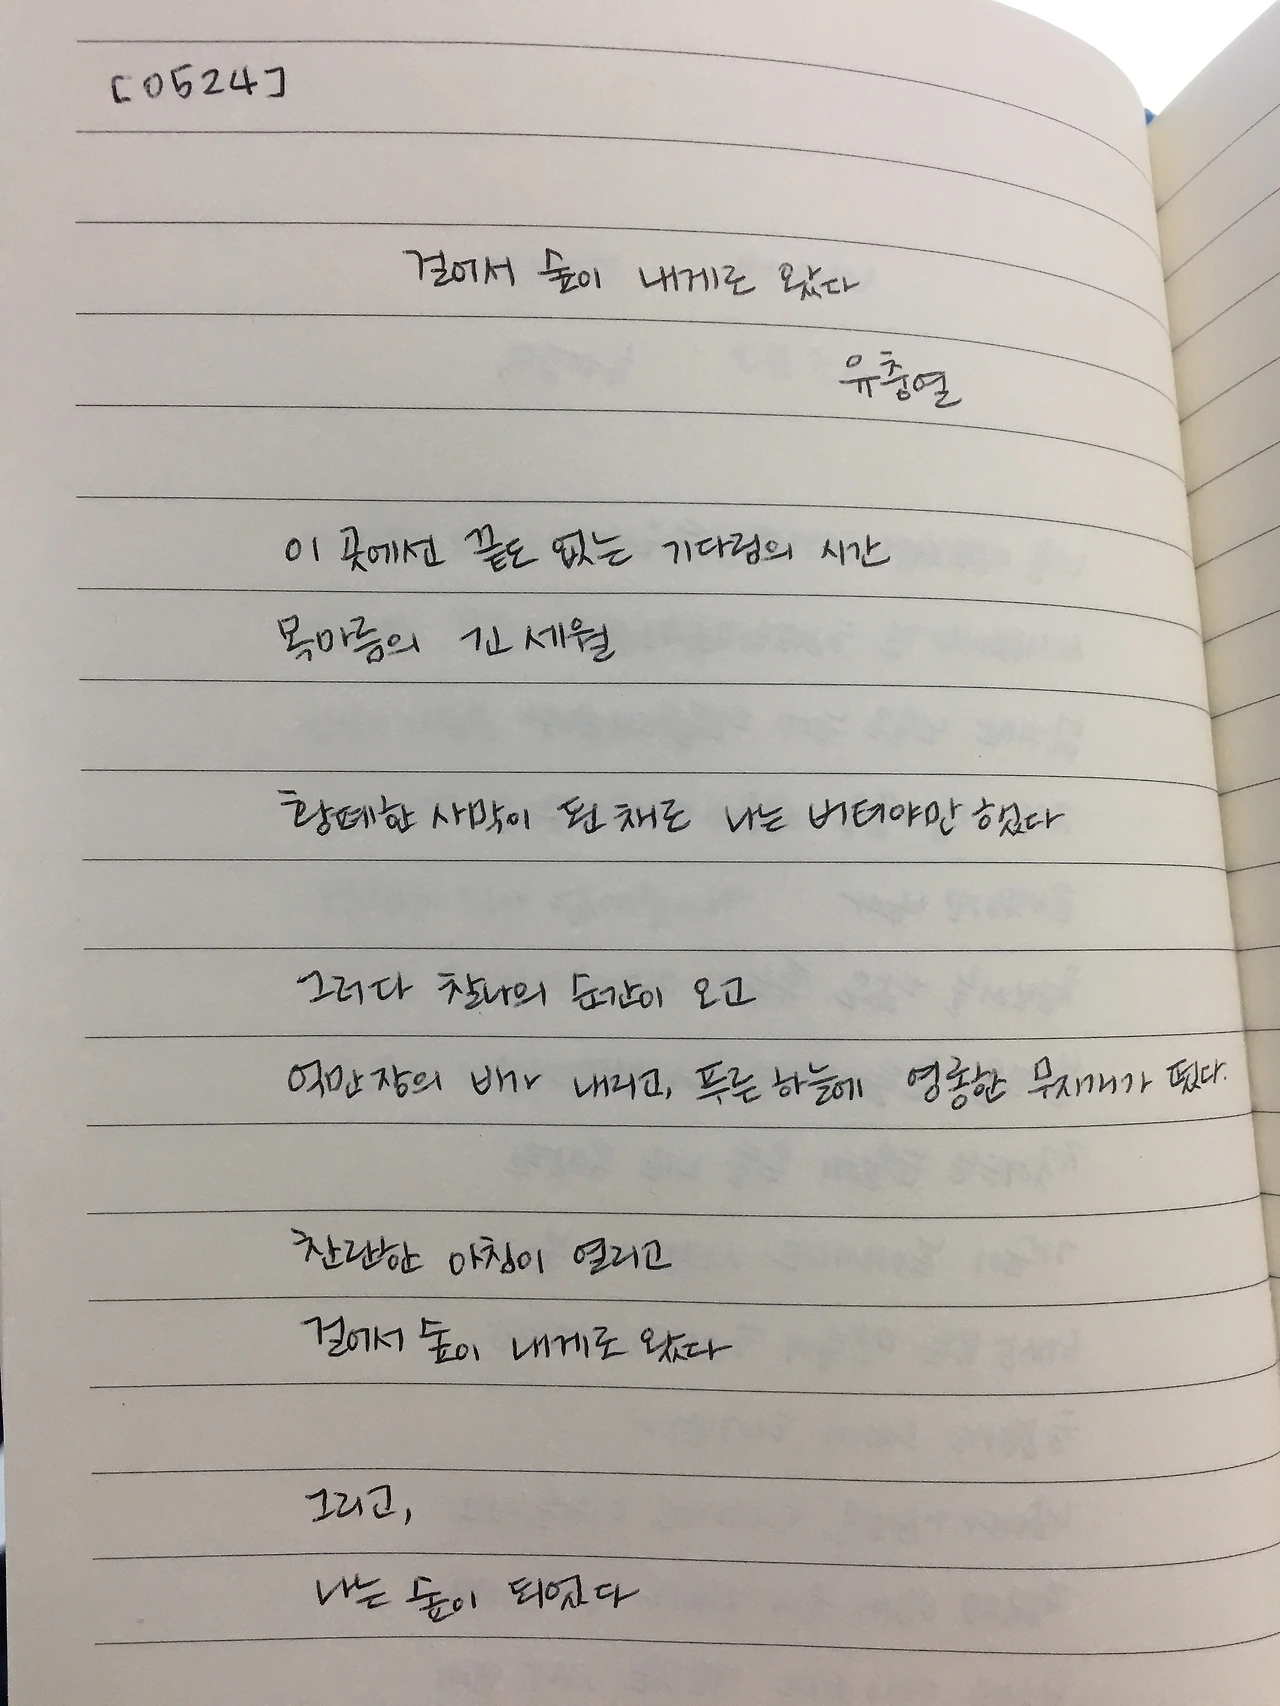 [0524]
걸어서 숲이 내게로 왔다
유충열
이 곳에선 끝도 없는 기다림의 시간
목마름의 긴 세월
황폐한 사막이 된 채로 나는 버텨야만 했다
그러다 찰나의 순간이 오고
억만 장의 비가 내리고, 푸른 하늘에 영롱한 무지개가 떴다.
찬란한 아침이 열리고
걸어서 숲이 내게로 왔다
그리고,
나는 숲이 되었다